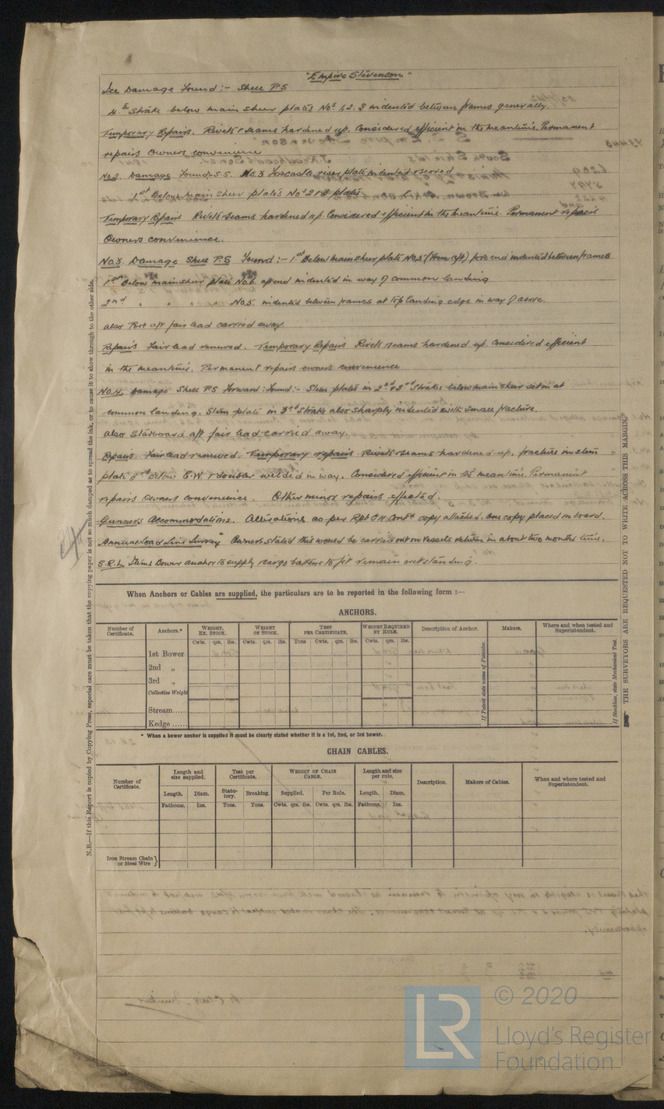 "Empire Stevenson"
Ice Damage Found:- Shell P.S
4th Strake below main sheer plates Nos 1, 2, 3 indented between frames generally.
Temporary Repairs. Rivets & seams hardened up. Considered efficient in the meantime. Permanent
repairs Owners convenience
No 2. Damage Found, S.S. No 3 Forecastle sheer plate indented
1st Below main sheer plates No
Temporary Repairs Rivets seams hardened up Considered efficient in the meantime. Permanent repairs
Owners convenience.
No 3. Damage Shell P.S Found:- 1st Below main sheer plate No 3 (from aft) fore end indented between frames
1st Below main sheer plate No 6 aft end indented in way of common landing
2nd " " " " No 5. indented between frames at top landing edge in way of above.
also Port aft fair lead carried away
Repairs Fair lead renewed. Temporary Repairs Rivets seams hardened up Considered efficient
in the meantime. Permanent repairs owners convenience
No 4. Damage Shell P.S Forward: Found:- Shell plates in 2nd & 3rd Strakes below main sheer set in at
common landing. Stem plate in 3rd Strake also sharply indented with small fracture.
also Starboard aft fair lead carried away.
Repairs. Fair lead renewed. Temporary repairs Rivets seams hardened up, fracture in stem
plate E.W & doubler welded in way. Considered efficient in the meantime. Permanent
repairs Owners convenience. Other minor repairs effected.
Gunners Accommodations. Alterations as per Rpt copy attached. One copy placed on board.
Annual Load Line Survey Owners stated this would be carried out on vessels return in about two months time.
S.R.L. Items Bower anchor to supply cargo battens to fit remain outstanding.
N.B.—If this Report is copied by Copying Press, especial care must be taken that the copying paper is not so much damped as to spread the ink, or to cause it to show through to the other side.
THE SURVEYORS ARE REQUESTED NOT TO WRITE ACROSS THIS MARGIN.
When Anchors or Cables are supplied, the particulars are to be reported in the following form :—
ANCHORS.
Number of Certificate. Anchors.* WEIGHT, EX. STOCK. WEIGHT OF STOCK. TEST PER CERTIFICATE. WEIGHT REQUIRED BY RULE. Description of Anchor. Makers. Where and when tested and Superintendent.
Cwts. qrs. lbs. Cwts. qrs. lbs. Tons Cwts. qrs. lbs. Cwts. qrs. lbs.
If Patent state name of Patentee.
If Stockless, state Mechanical Test.
1st Bower
2nd "
3rd "
Collective Weight
Stream
Kedge
* When a bower anchor is supplied it must be clearly stated whether it is a 1st, 2nd, or 3rd bower.
CHAIN CABLES.
Number of Certificate. Length and size supplied. Test per Certificate. WEIGHT OF CHAIN CABLE. Length and size per rule. Description. Makers of Cables. When and where tested and Superintendent.
Length. Diam. Statutory. Breaking. Supplied. Per Rule. Length. Diam.
Fathoms. Ins. Tons. Tons. Cwts. qrs. lbs. Cwts. qrs. lbs. Fathoms. Ins.
Iron Stream Chain or Steel Wire
LR
© 2020
Lloyd's Register
Foundation